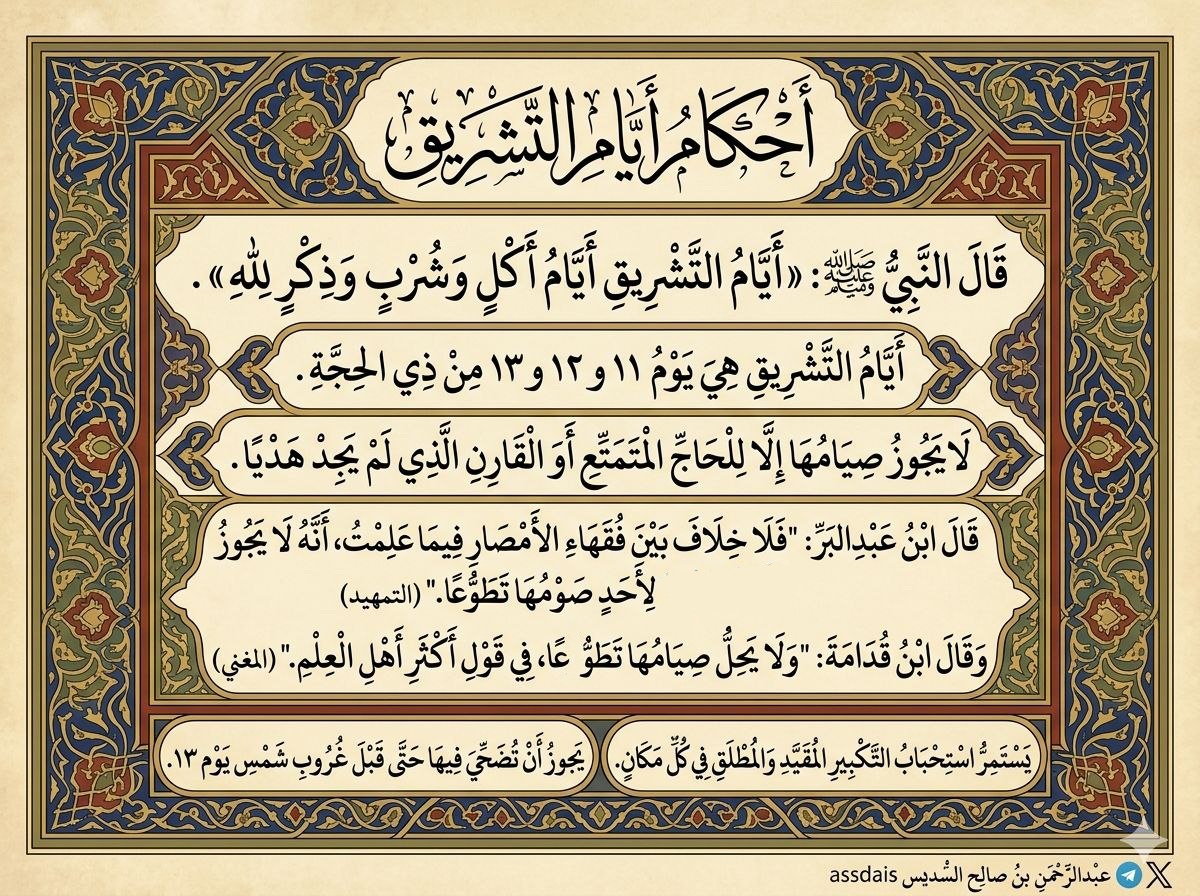 أَحْكَامُ أَيَّامِ التَّشْرِيقِ
قَالَ النَّبِيُّ ﷺ: «أَيَّامُ التَّشْرِيقِ أَيَّامُ أَكْلٍ وَشُرْبٍ وَذِكْرٍ لِلَّهِ».
أَيَّامُ التَّشْرِيقِ هِيَ يَوْمُ ١١ و ١٢ و ١٣ مِنْ ذِي الحِجَّةِ.
لَا يَجُوزُ صِيَامُهَا إِلَّا لِلْحَاجِّ الْمُتَمَتِّعِ أَوِ الْقَارِنِ الَّذِي لَمْ يَجِدْ هَدْيًا.
قَالَ ابْنُ عَبْدِالبَرِّ: "فَلَا خِلَافَ بَيْنَ فُقَهَاءِ الأَمْصَارِ فِيمَا عَلِمْتُ، أَنَّهُ لَا يَجُوزُ
لِأَحَدٍ صَوْمُهَا تَطَوُّعًا." (التمهيد)
وَقَالَ ابْنُ قُدَامَةَ: "وَلَا يَحِلُّ صِيَامُهَا تَطَوُّعًا، فِي قَوْلِ أَكْثَرِ أَهْلِ الْعِلْمِ." (المغني)
يَسْتَمِرُّ اسْتِحْبَابُ التَّكْبِيرِ المُقَيَّدِ وَالمُطْلَقِ فِي كُلِّ مَكَانٍ.
يَجوزُ أَنْ تُضَحِّيَ فِيهَا حَتَّى قَبْلَ غُرُوبِ شَمْسِ يَوْم ١٣.
عبْدالرَّحْمَنِ بنُ صالحِ السُّديس assdais